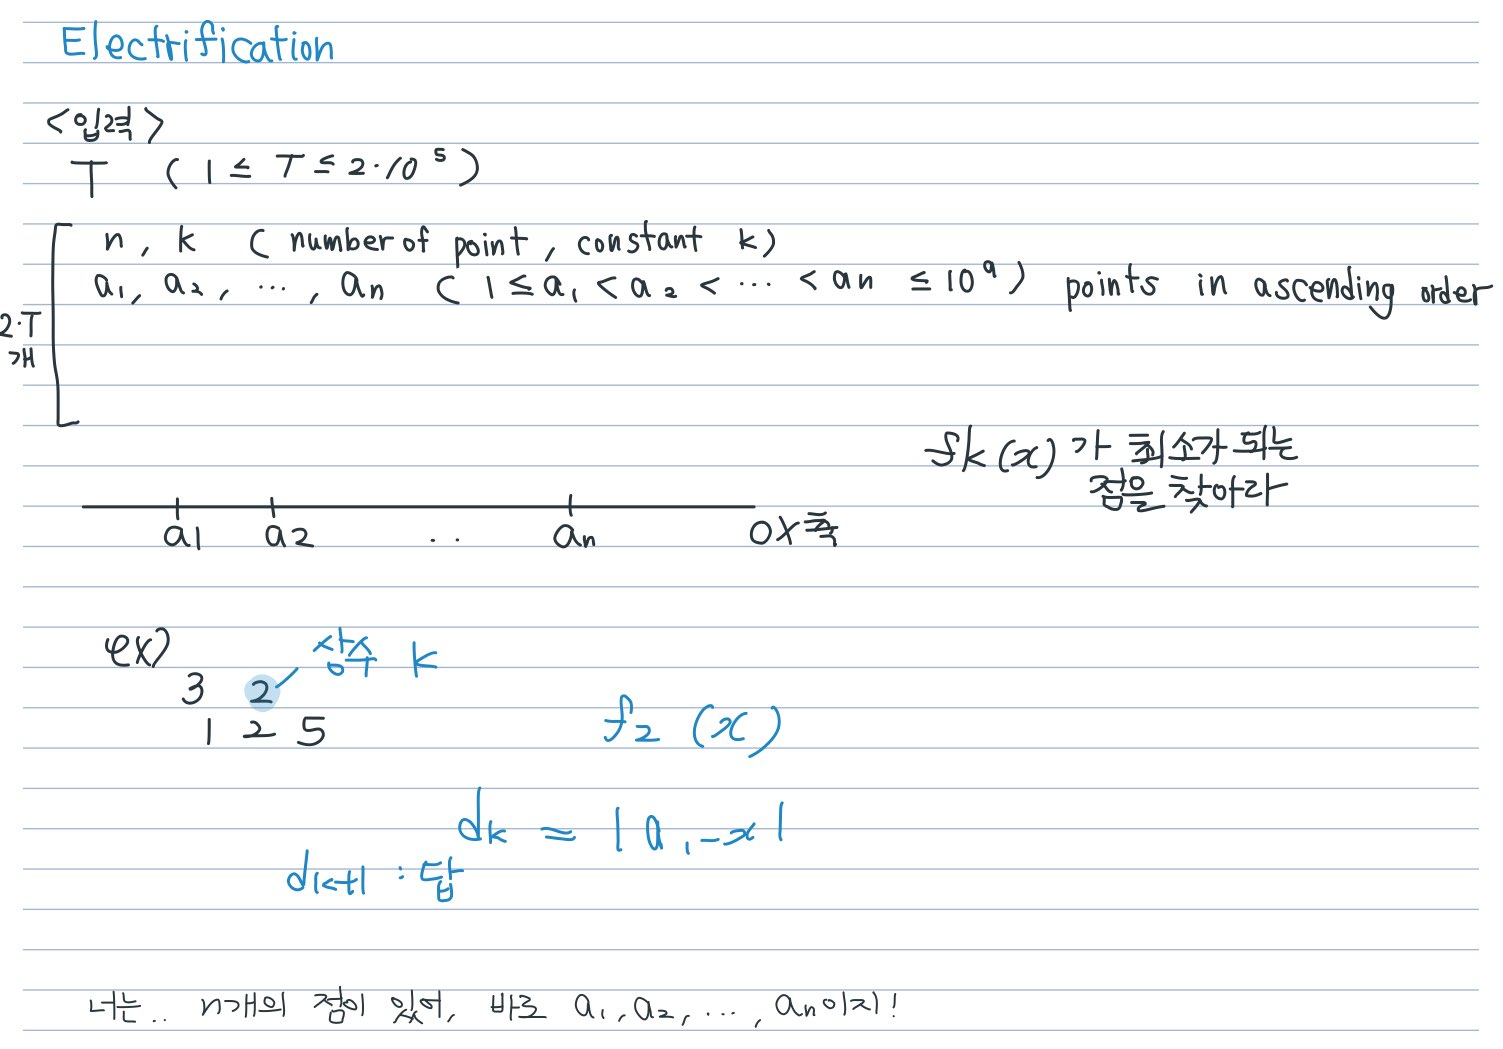 Electrification
<입력>
T ( 1 ≤ T ≤ 2·10⁵ )
n, k ( number of point, constant k)
a₁, a₂, ..., an ( 1 ≤ a₁ < a₂ < ... < an ≤ 10⁹ ) points in ascending order
2·T
개
fk(x)가 최소가 되는
점을 찾아라
a1 a2 .. an OX축
ex)
상수 k
3 2
1 2 5
f₂ (x)
dk = |a₁-x|
dk+1 : 답
너는.. n개의 점이 있어, 바로 a₁, a₂, ..., an이지!